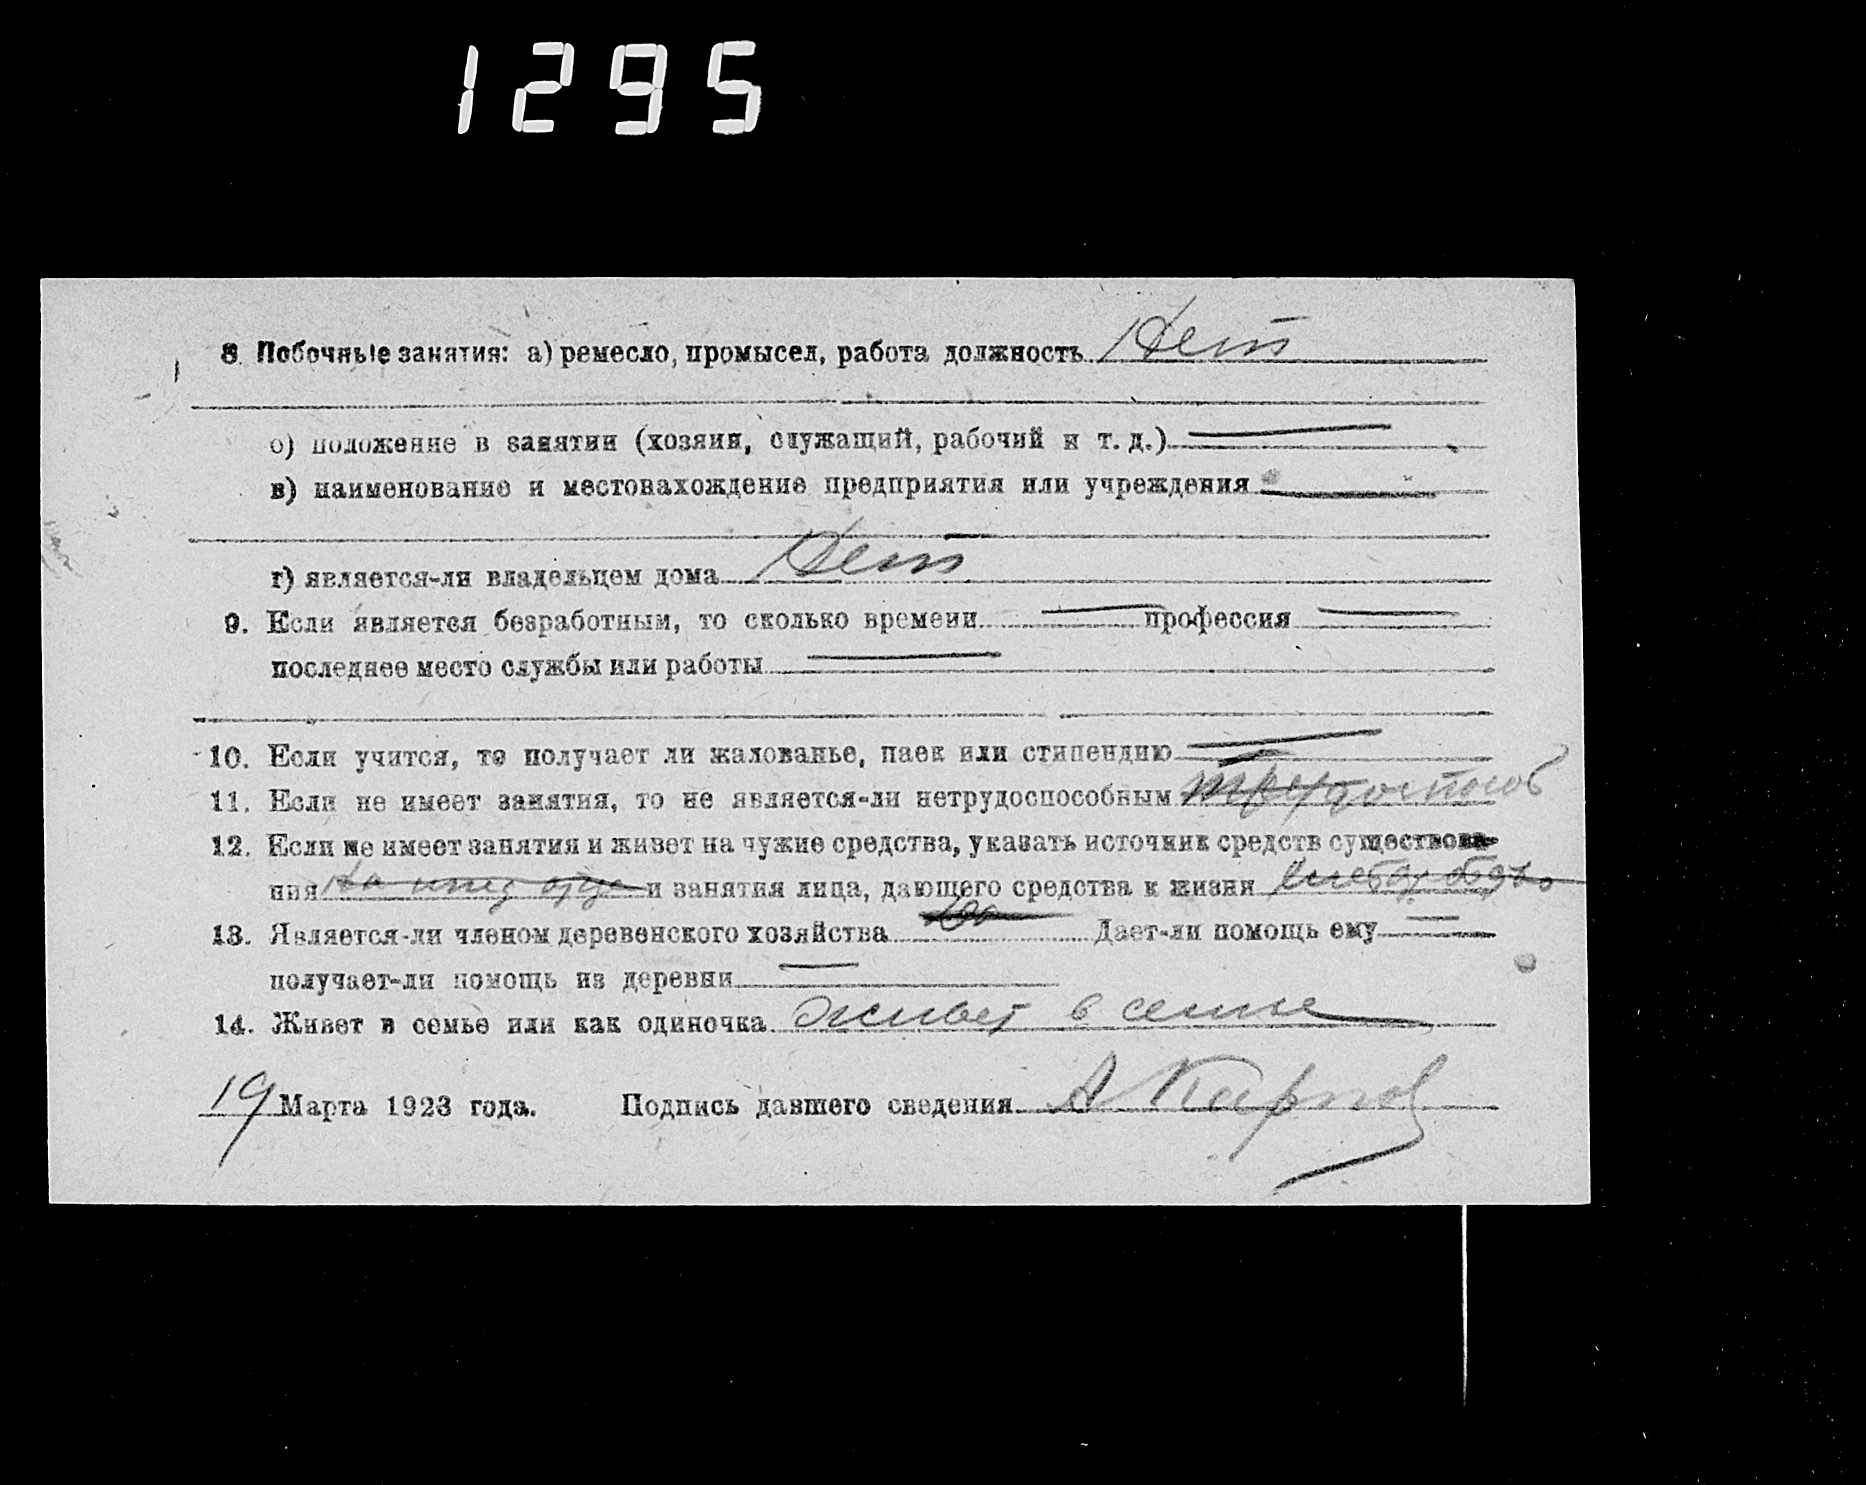 1295
8. Побочные занятия: а) ремесло, промысел, работа должность Нет
о) положение в занятии (хозяин, служащий, рабочий и т. д.)
в) наименование и местонахождение предприятия или учреждения
г) является-ли владельцем дома Нет
9. Если является безработным, то сколько времени профессия
последнее место службы или работы
10. Если учится, то получает ли жалованье, паек или стипендию
11. Если не имеет занятия, то не является-ли нетрудоспособным трудоспособ
12. Если не имеет занятия и живет на чужие средства, указать источник средств существова-
ния На и занятия лица, дающего средства к жизни
13. Является-ли членом деревенского хозяйства Дает-ли помощь ему
получает-ли помощь из деревни
14. Живет в семье или как одиночка живет в семье
19 Марта 1923 года. Подпись давшего сведения А Карпов